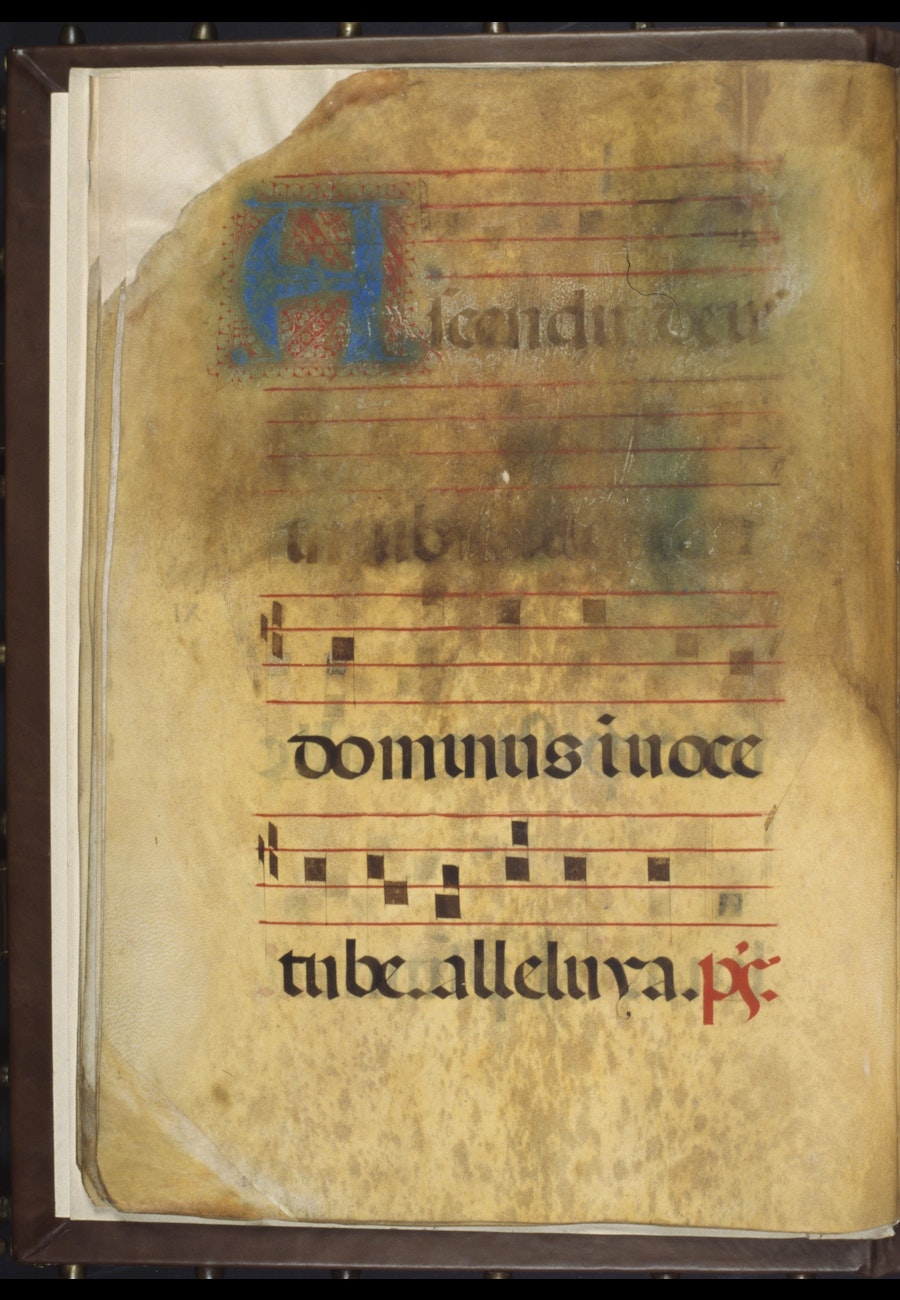 Ascendit deus
in iubilatione
dominus i uoce
tube. alleluya. ps.